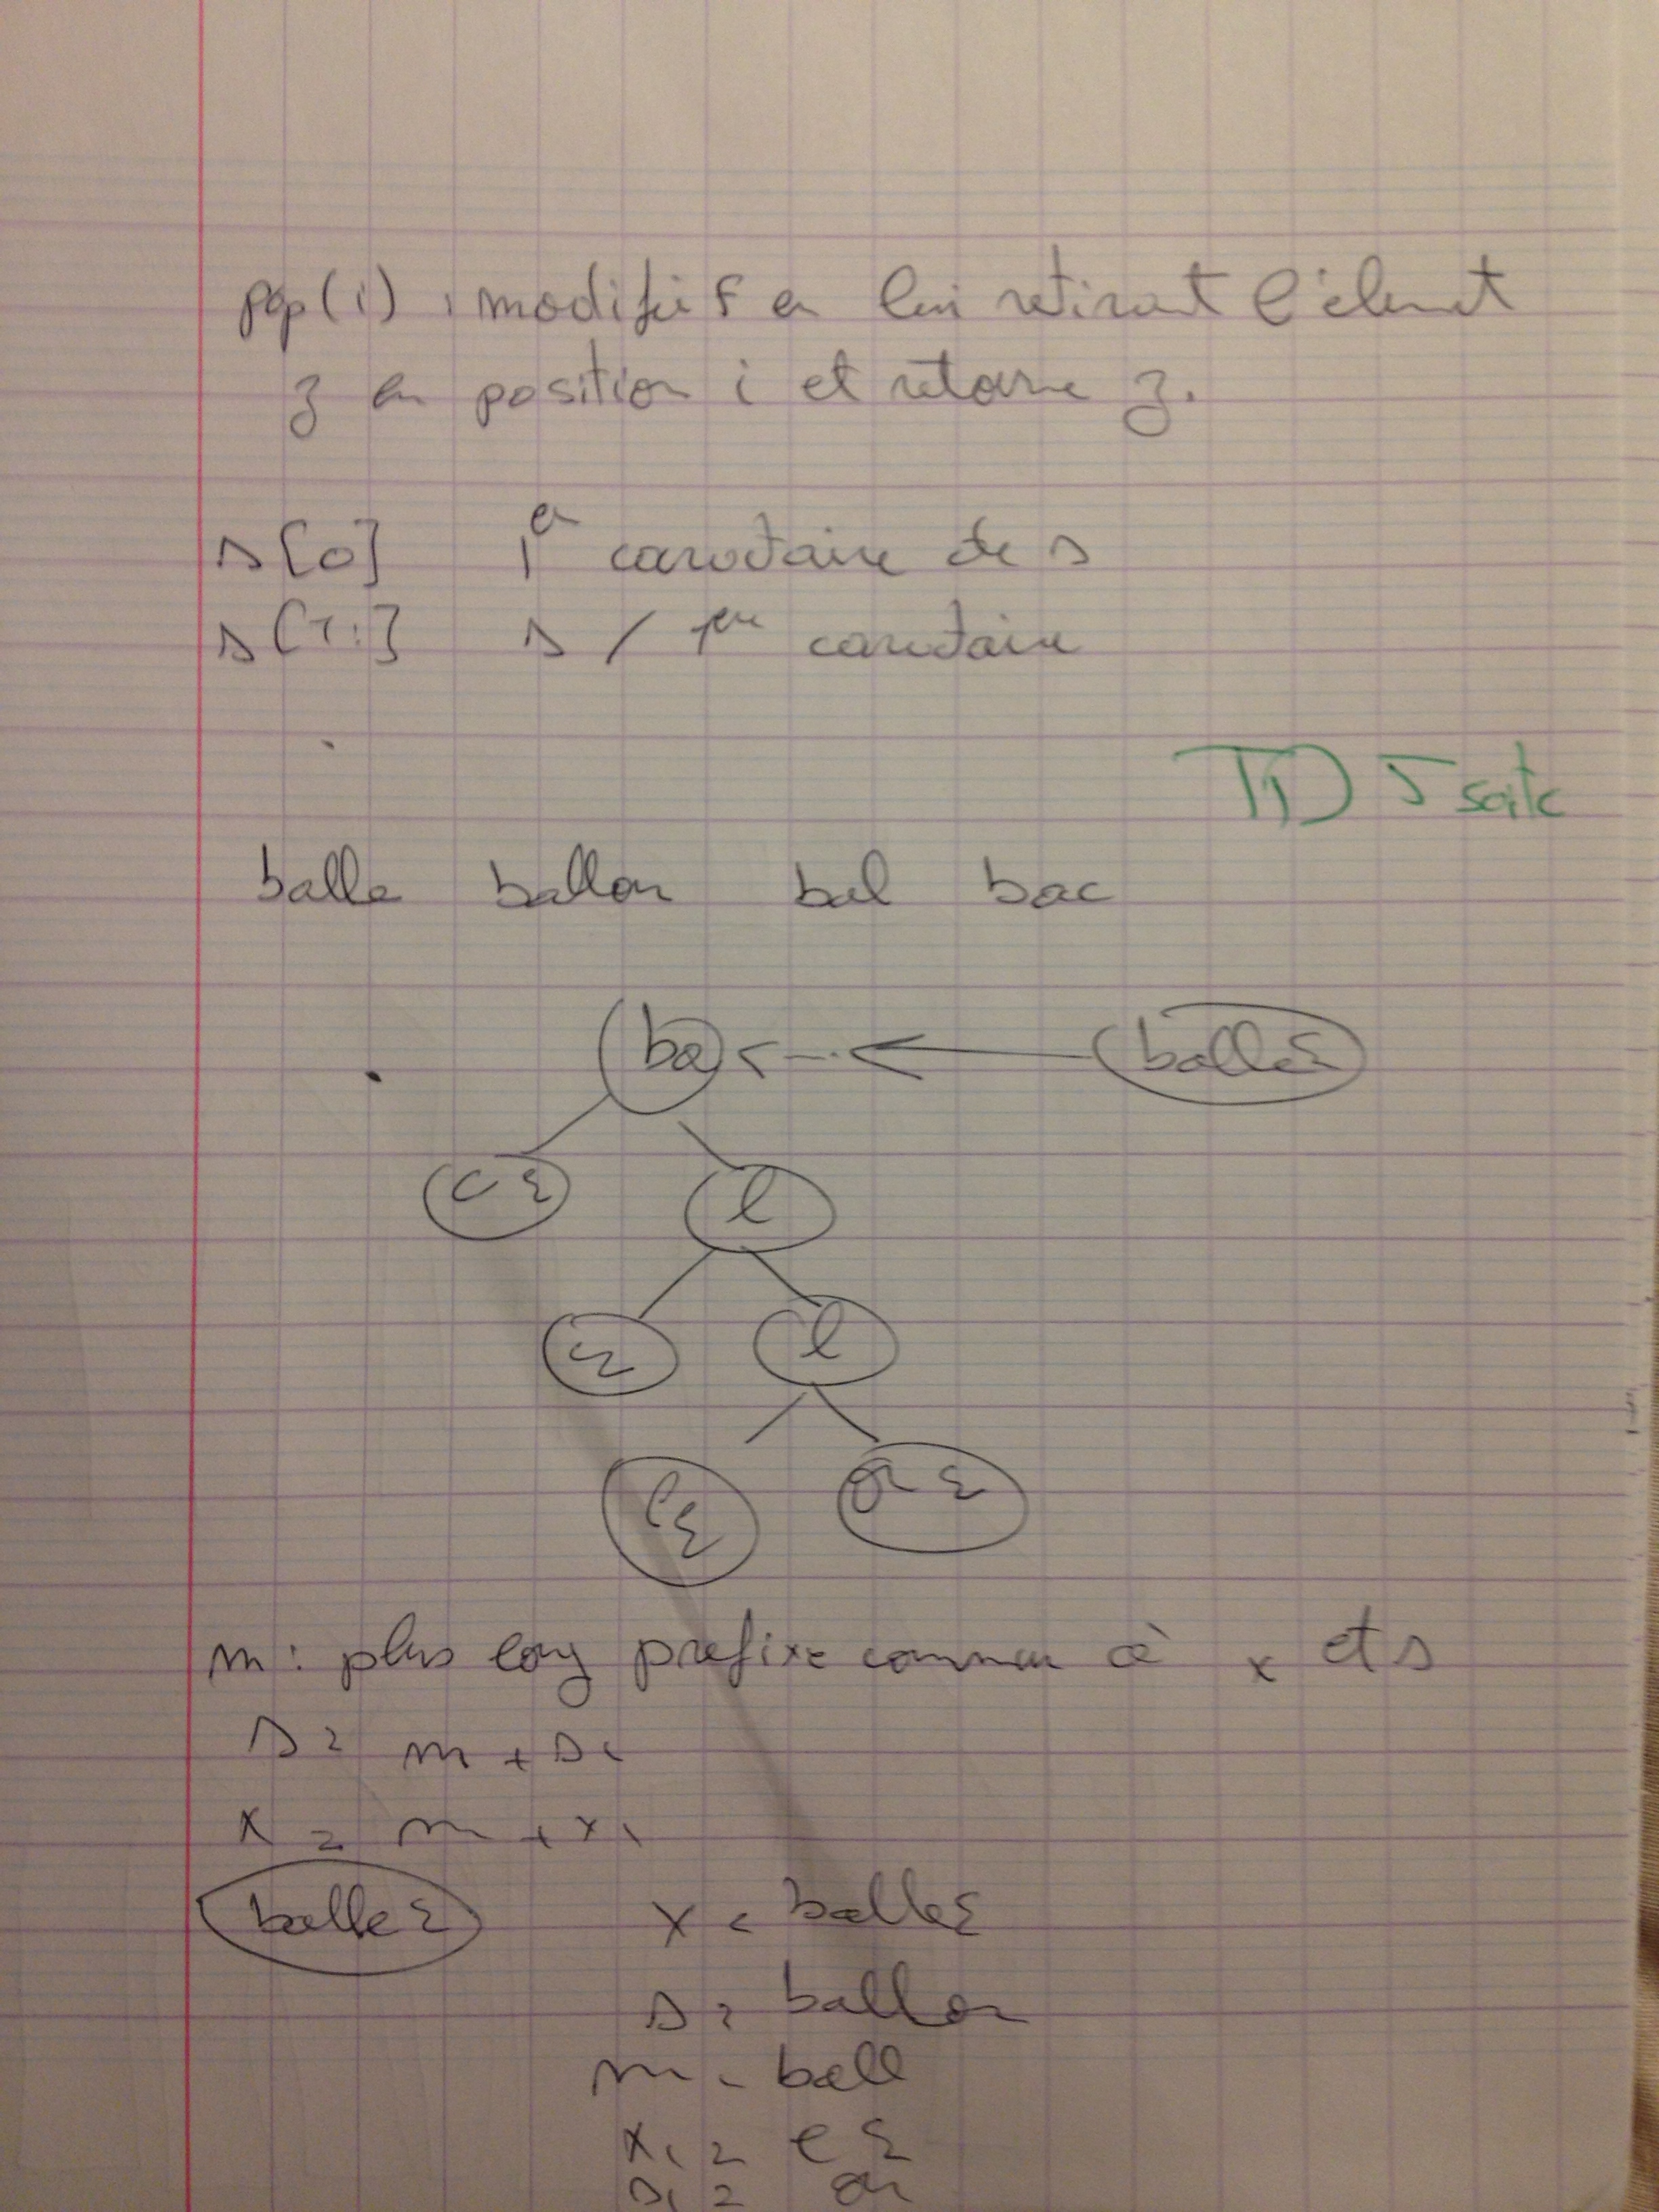 pop(i) : modifie F en lui retirant l'élément
z en position i et retourne z.
s[0] 1er caractaire de s
s[1:] s / 1er caractaire
TD 5 suite
balle ballon bal bac
ba < balleε
cε l
ε l
eε onε
m : plus long prefixe commun à x et s
s = m + s1
x = m + x1
balleε x = balleε
s = ballon
m = ball
x1 = eε
s1 = on